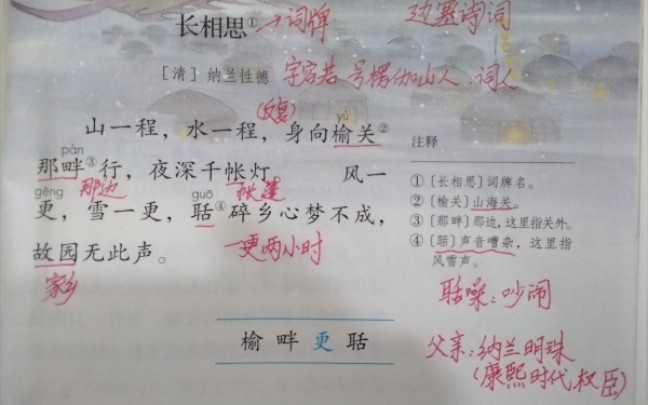 长相思① →词牌
边塞诗词
[清] 纳兰性德 字容若 号楞伽山人 词人
山一程，水一程，身向榆关②
yú
pàn
那畔③行，夜深千帐灯。 风一
那边 帐篷
gēng guō
更，雪一更，聒④碎乡心梦不成，
故园无此声。
家乡
一更两小时
榆 畔 更 聒
注释
①〔长相思〕词牌名。
②〔榆关〕山海关。
③〔那畔〕那边，这里指关外。
④〔聒〕声音嘈杂，这里指
风雪声。
聒噪：吵闹
父亲：纳兰明珠
（康熙时代权臣）